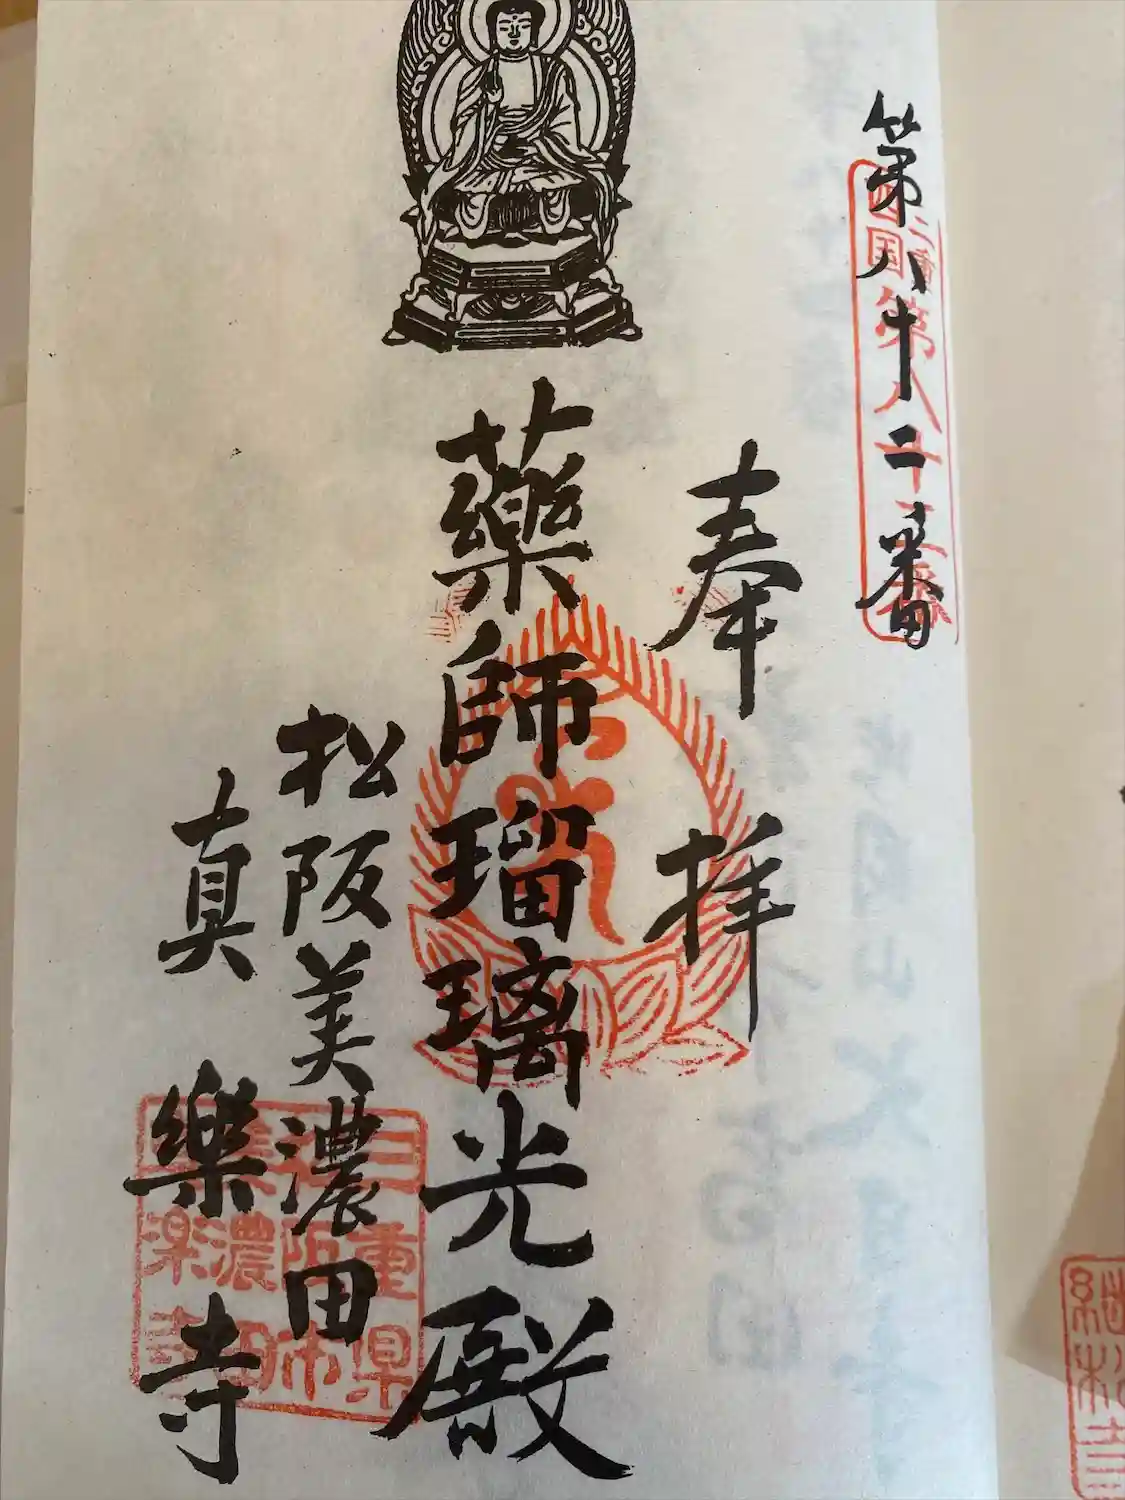 第八十二番
四国第八十二番
奉拝
薬師瑠璃光殿
松阪美濃田
真樂寺
三重県
阪市
濃田
楽寺